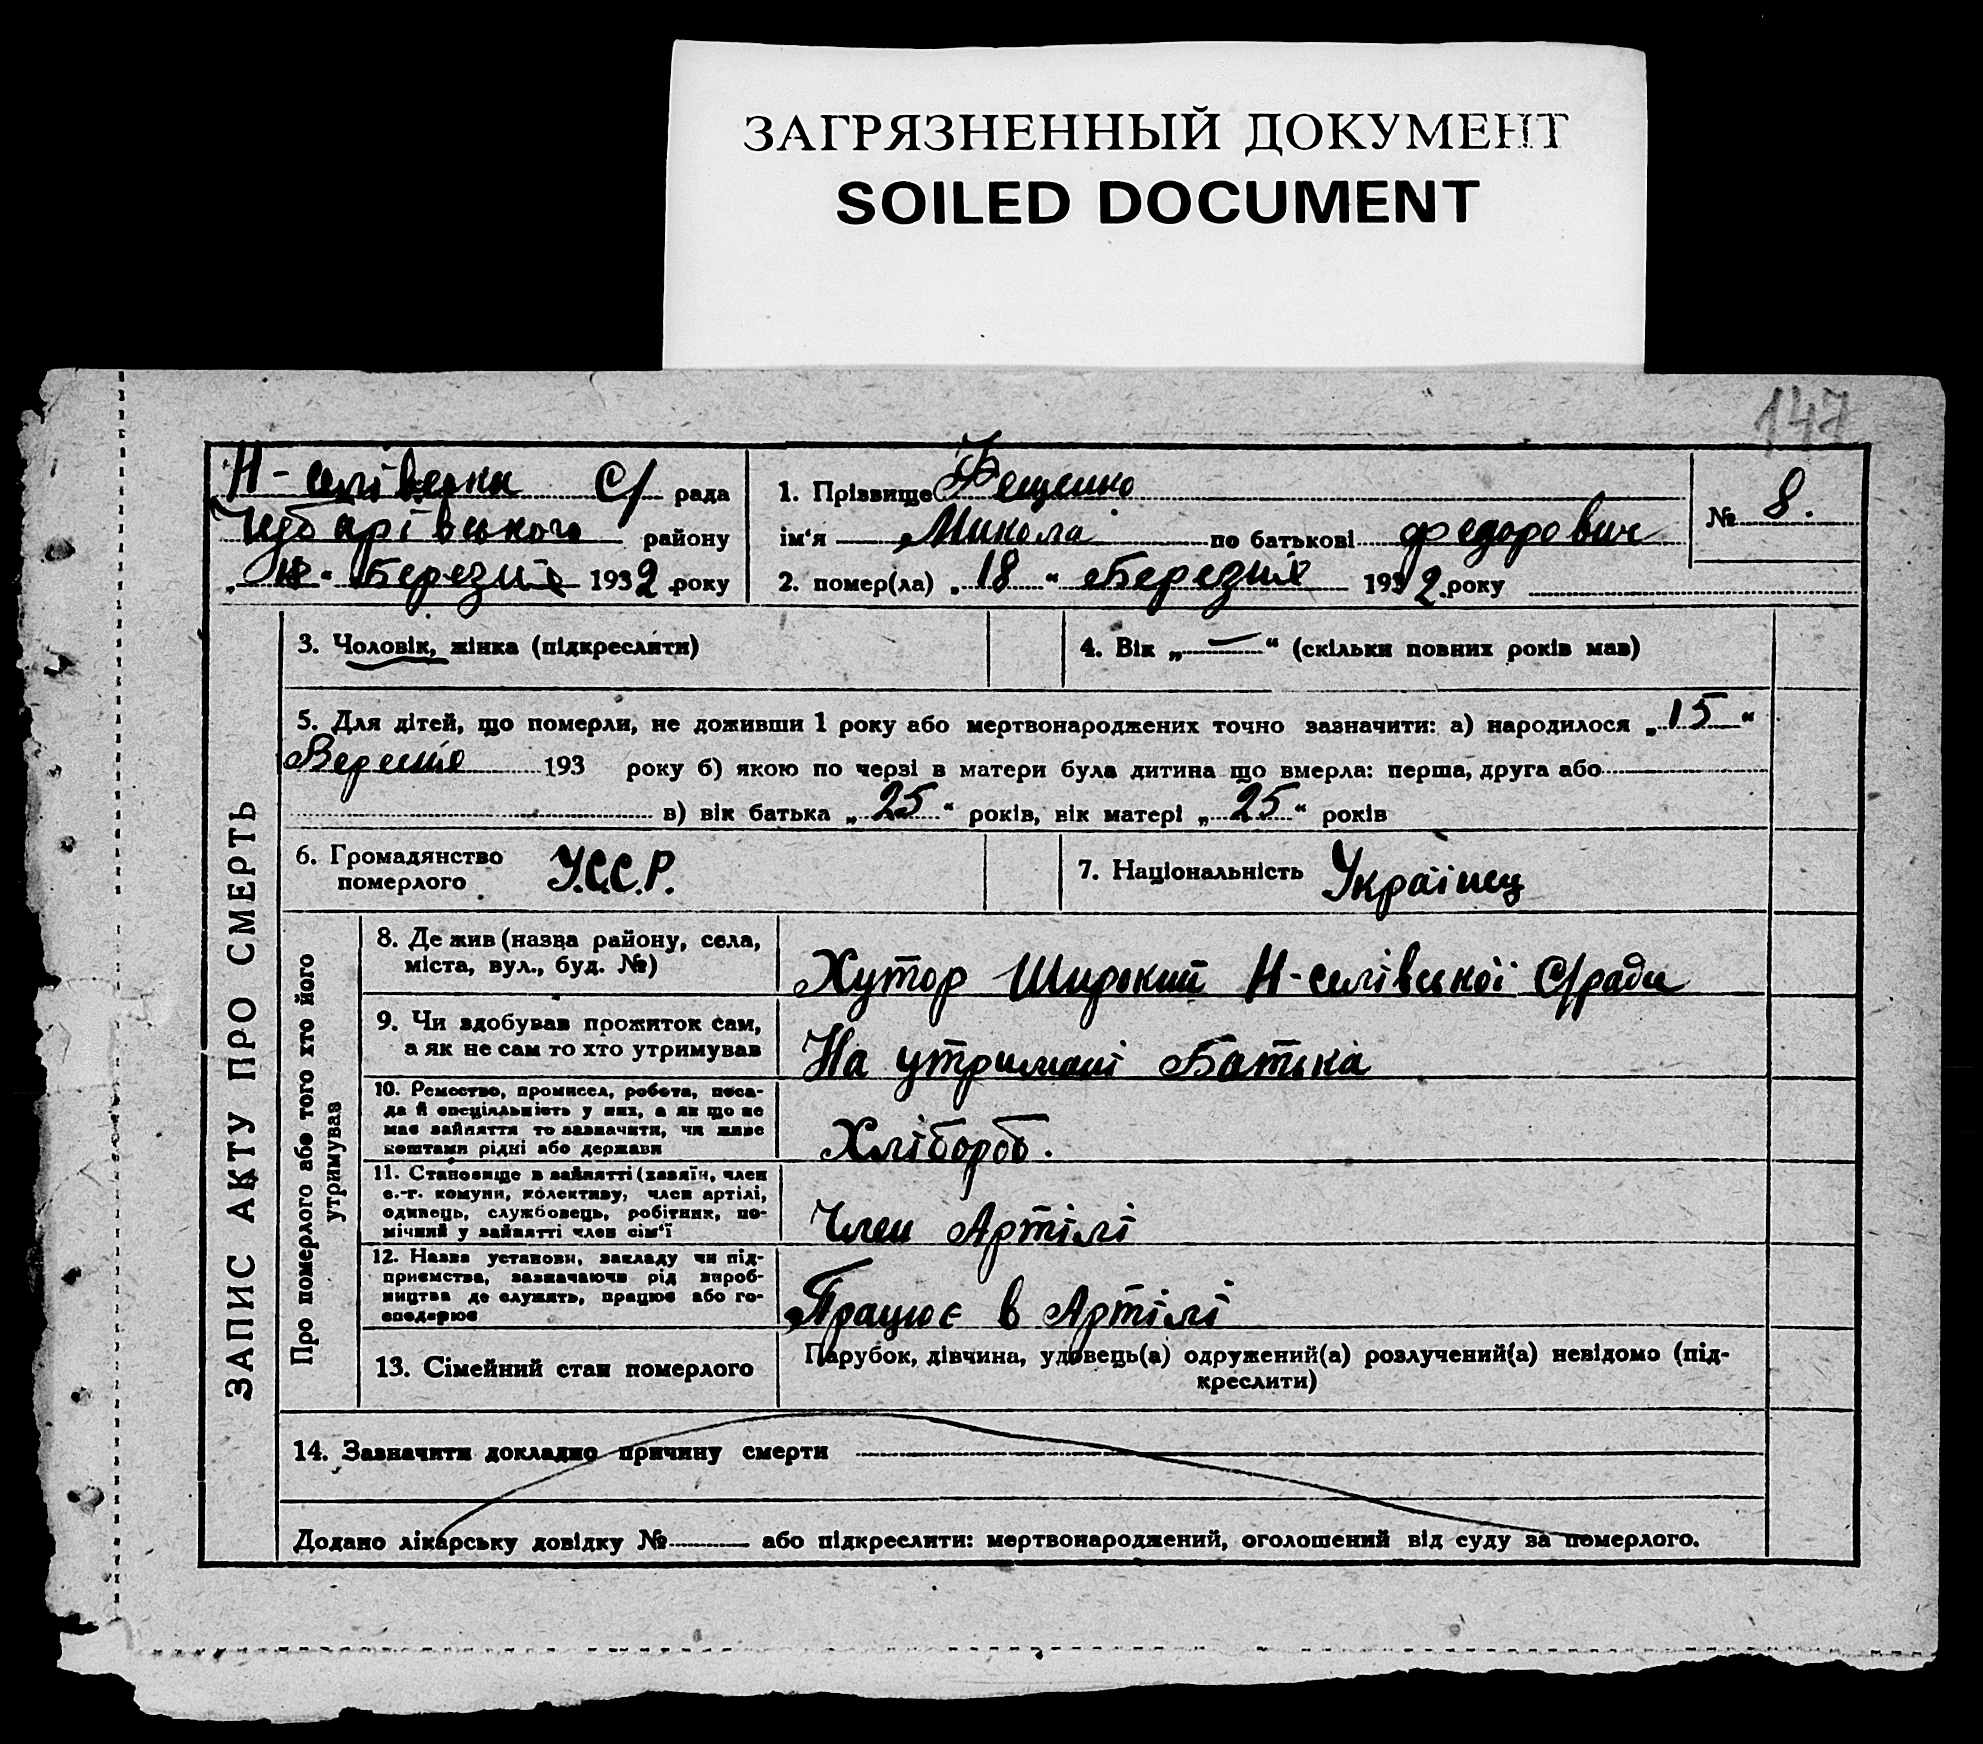 ЗАГРЯЗНЕННЫЙ ДОКУМЕНТ
SOILED DOCUMENT
147
Н-селівська С/ рада
Чубарівського району
„18“ Березня 1932 року
1. Прізвище Фещенко
ім‘я Микола по батькові Федорович
2. помер(ла) „18“ Березня 1932 року
№ 8.
ЗАПИС АКТУ ПРО СМЕРТЬ
3. Чоловік, жінка (підкреслити)
4. Вік „—“ (скільки повних років мав)
5. Для дітей, що померли, не доживши 1 року або мертвонароджених точно зазначити: а) народилося „15“
Вересня 193 року б) якою по черзі в матери була дитина що вмерла: перша, друга або
в) вік батька „25“ років, вік матері „25“ років
6. Громадянство
померлого У.С.С.Р.
7. Національність Українец
Про померлого або того хто його
утримував
8. Де жив (назва району, села,
міста, вул., буд. №)
Хутор Широкий Н-селівської С/ради
9. Чи здобував прожиток сам,
а як не сам то хто утримував
На утримані Батька
10. Ремество, промисел, робота, поса-
да й спеціяльність у них, а як що не
має зайняття то зазначити, чи живе
коштами рідні або держави
Хлібороб.
11. Становище в зайнятті (хазяїн, член
с.-г. комуни, колективу, член артілі,
одинець, службовець, робітник, по-
мічний у зайнятті член сім‘ї
Член Артілі
12. Назва установи, закладу чи під-
приємства, зазначаючи рід вироб-
ництва де служить, працює або го-
сподарює
Працює в Артілі
13. Сімейний стан померлого
Парубок, дівчина, удовець(а) одружений(а) розлучений(а) невідомо (під-
креслити)
14. Зазначити докладно причину смерти
Додано лікарську довідку № або підкреслити: мертвонароджений, оголошений від суду за померлого.